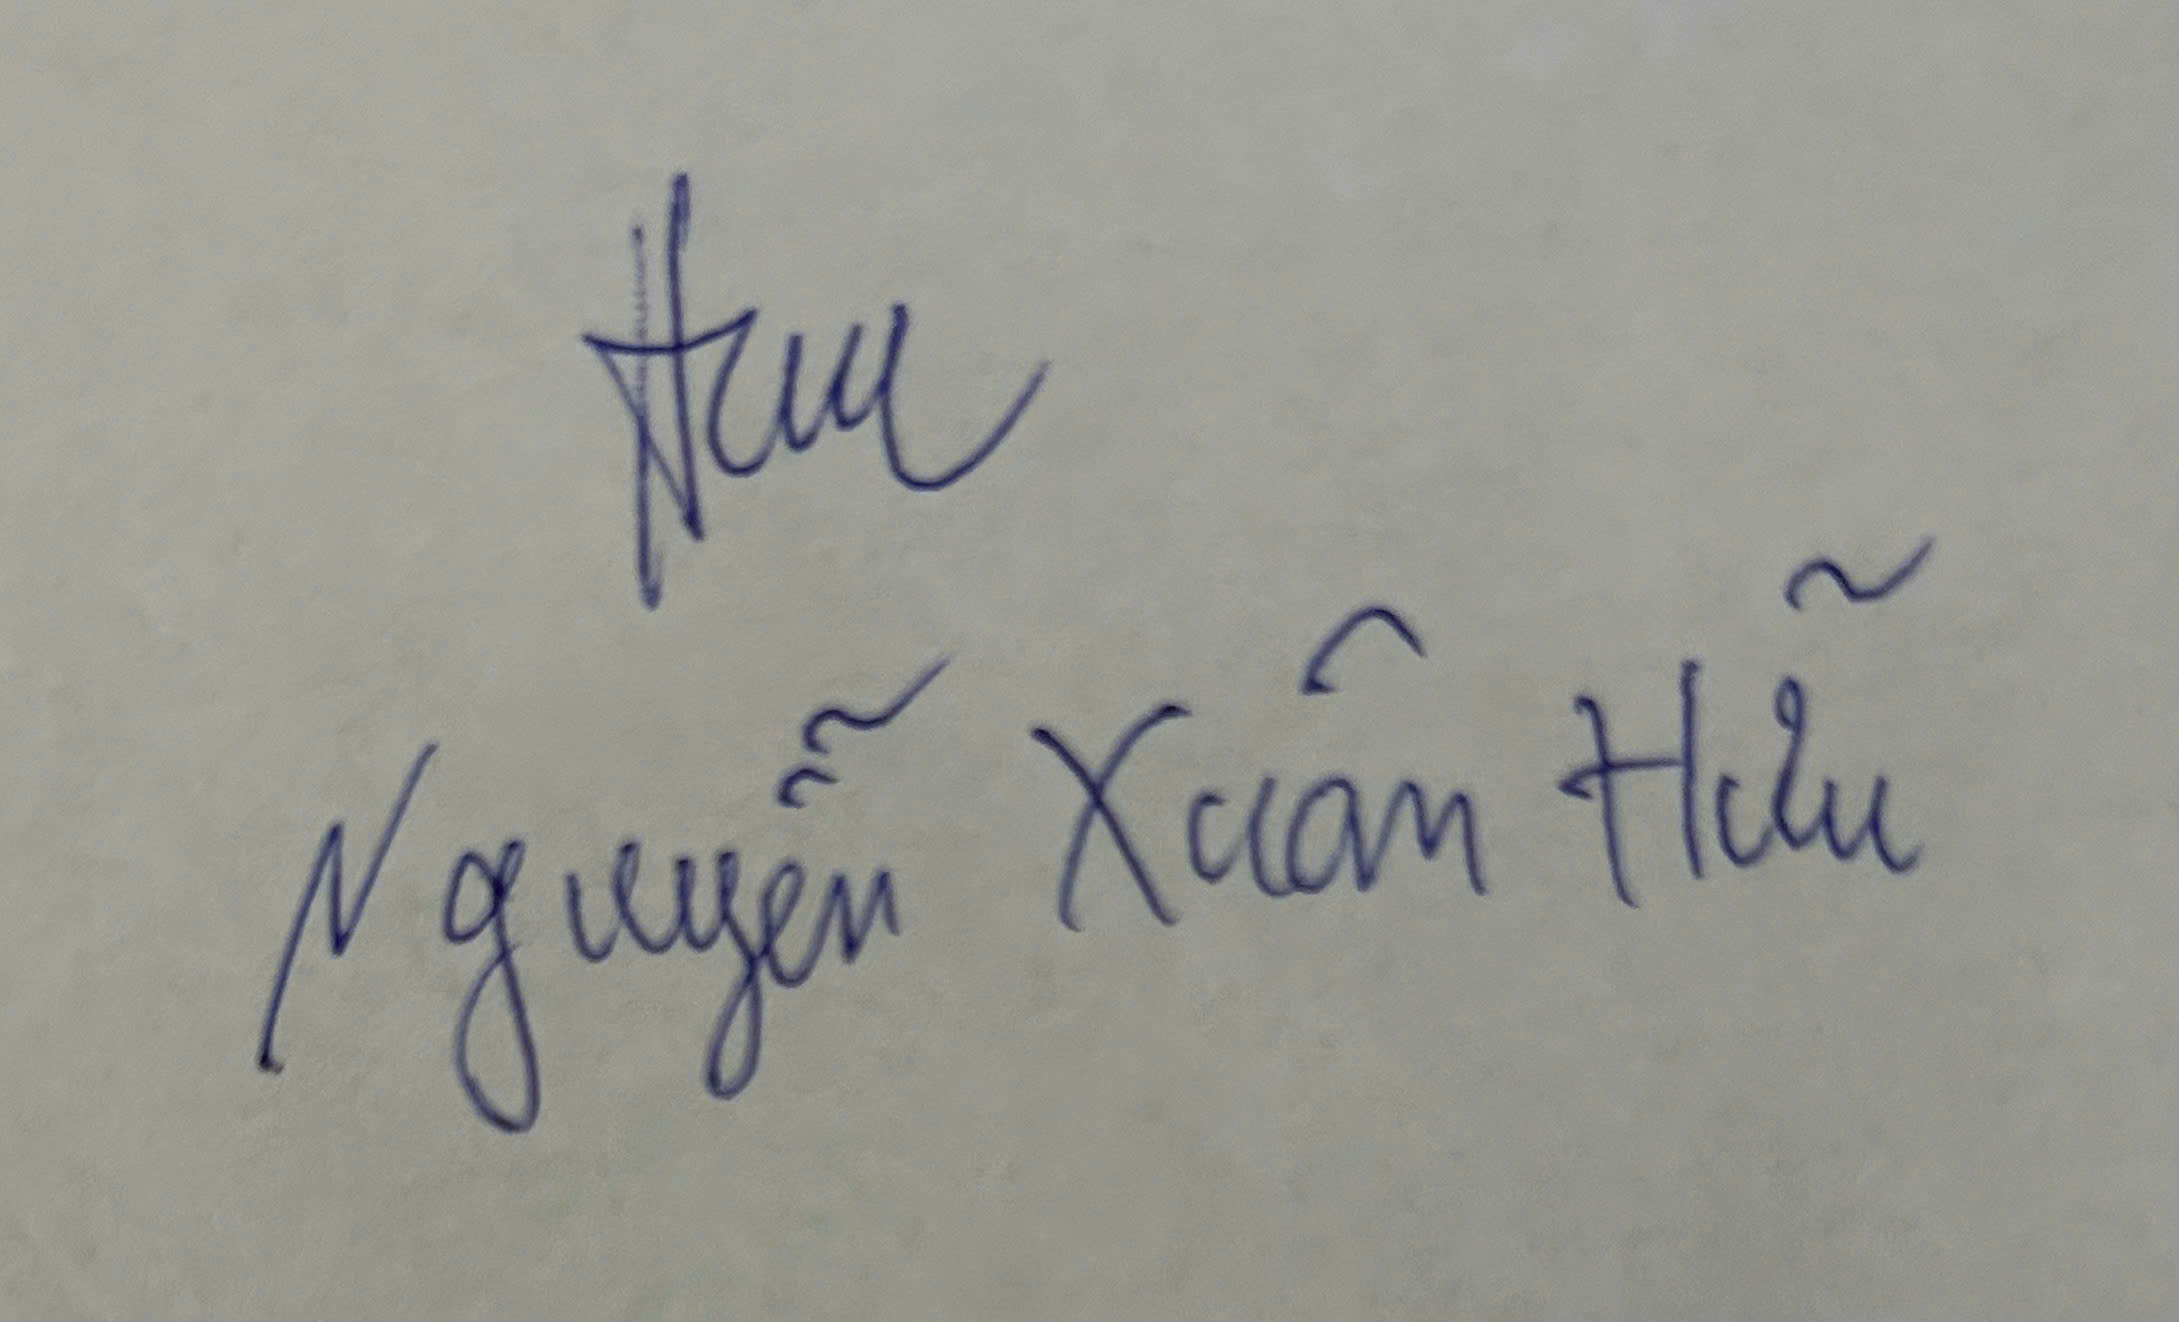 Hưu
Nguyễn Xuân Hữu